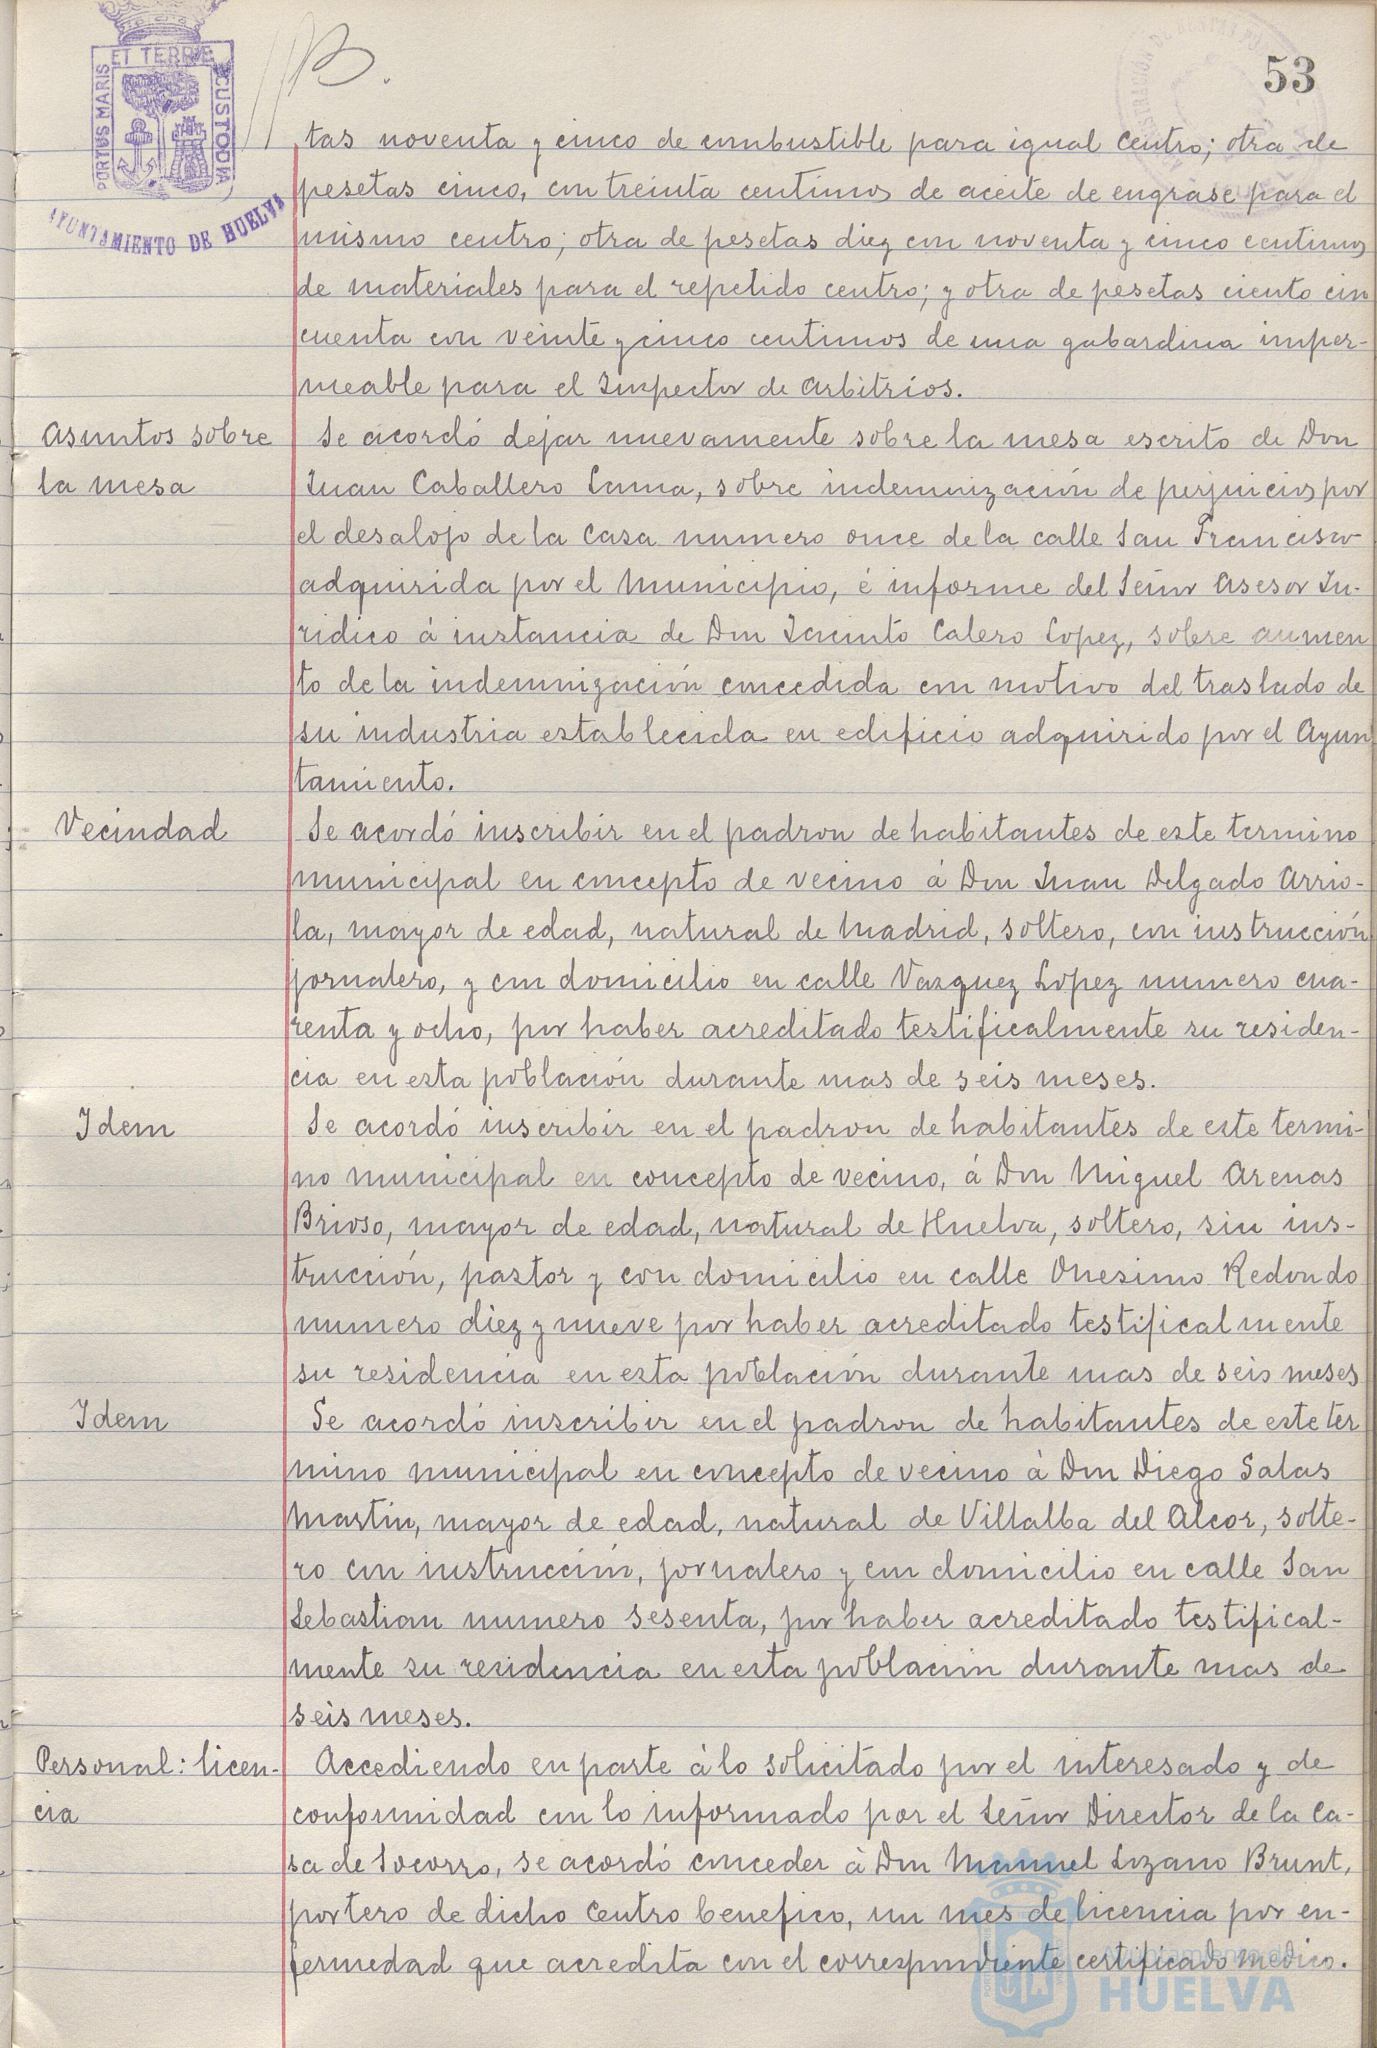 PORTUS MARIS ET TERRÆ CUSTODIA
AYUNTAMIENTO DE HUELVA
53
tas noventa y cinco de combustible para igual centro; otra de
pesetas cinco, con treinta centimos de aceite de engrase para el
mismo centro; otra de pesetas diez con noventa y cinco centimos
de materiales para el repetido centro; y otra de pesetas ciento cin
cuenta con veinte y cinco centimos de una gabardina imper-
meable para el Inspector de Arbitrios.
Asuntos sobre
la mesa
Se acordó dejar nuevamente sobre la mesa escrito de Don
Juan Caballero Lama, sobre indemnización de perjuicios por
el desalojo de la casa numero once de la calle San Francisco
adquirida por el Municipio, é informe del Señor Asesor Ju-
ridico á instancia de Don Jacinto Calero Lopez, sobre aumen
to de la indemnización concedida con motivo del traslado de
su industria establecida en edificio adquirido por el Ayun
tamiento.
Vecindad
Se acordó inscribir en el padron de habitantes de este termino
municipal en concepto de vecino á Don Juan Delgado Arrio-
la, mayor de edad, natural de Madrid, soltero, con instrucción
jornalero, y con domicilio en calle Vazquez Lopez numero cua-
renta y ocho, por haber acreditado testificalmente su residen-
cia en esta población durante mas de seis meses.
Idem
Se acordó inscribir en el padron de habitantes de este termi-
no municipal en concepto de vecino, á Don Miguel Arenas
Brioso, mayor de edad, natural de Huelva, soltero, sin ins-
trucción, pastor y con domicilio en calle Onesimo Redondo
numero diez y nueve por haber acreditado testificalmente
su residencia en esta población durante mas de seis meses
Idem
Se acordó inscribir en el padron de habitantes de este ter
mino municipal en concepto de vecino á Don Diego Salas
Martin, mayor de edad, natural de Villalba del Alcor, solte-
ro con instrucción, jornalero y con domicilio en calle San
Sebastian numero sesenta, por haber acreditado testifical-
mente su residencia en esta población durante mas de
seis meses.
Personal: licen-
cia
Accediendo en parte á lo solicitado por el interesado y de
conformidad con lo informado por el Señor Director de la Ca-
sa de Socorro, se acordó conceder á Don Manuel Lozano Brunt,
portero de dicho Centro benefico, un mes de licencia por en-
fermedad que acredita con el correspondiente certificado medico.
Ayuntamiento de
HUELVA